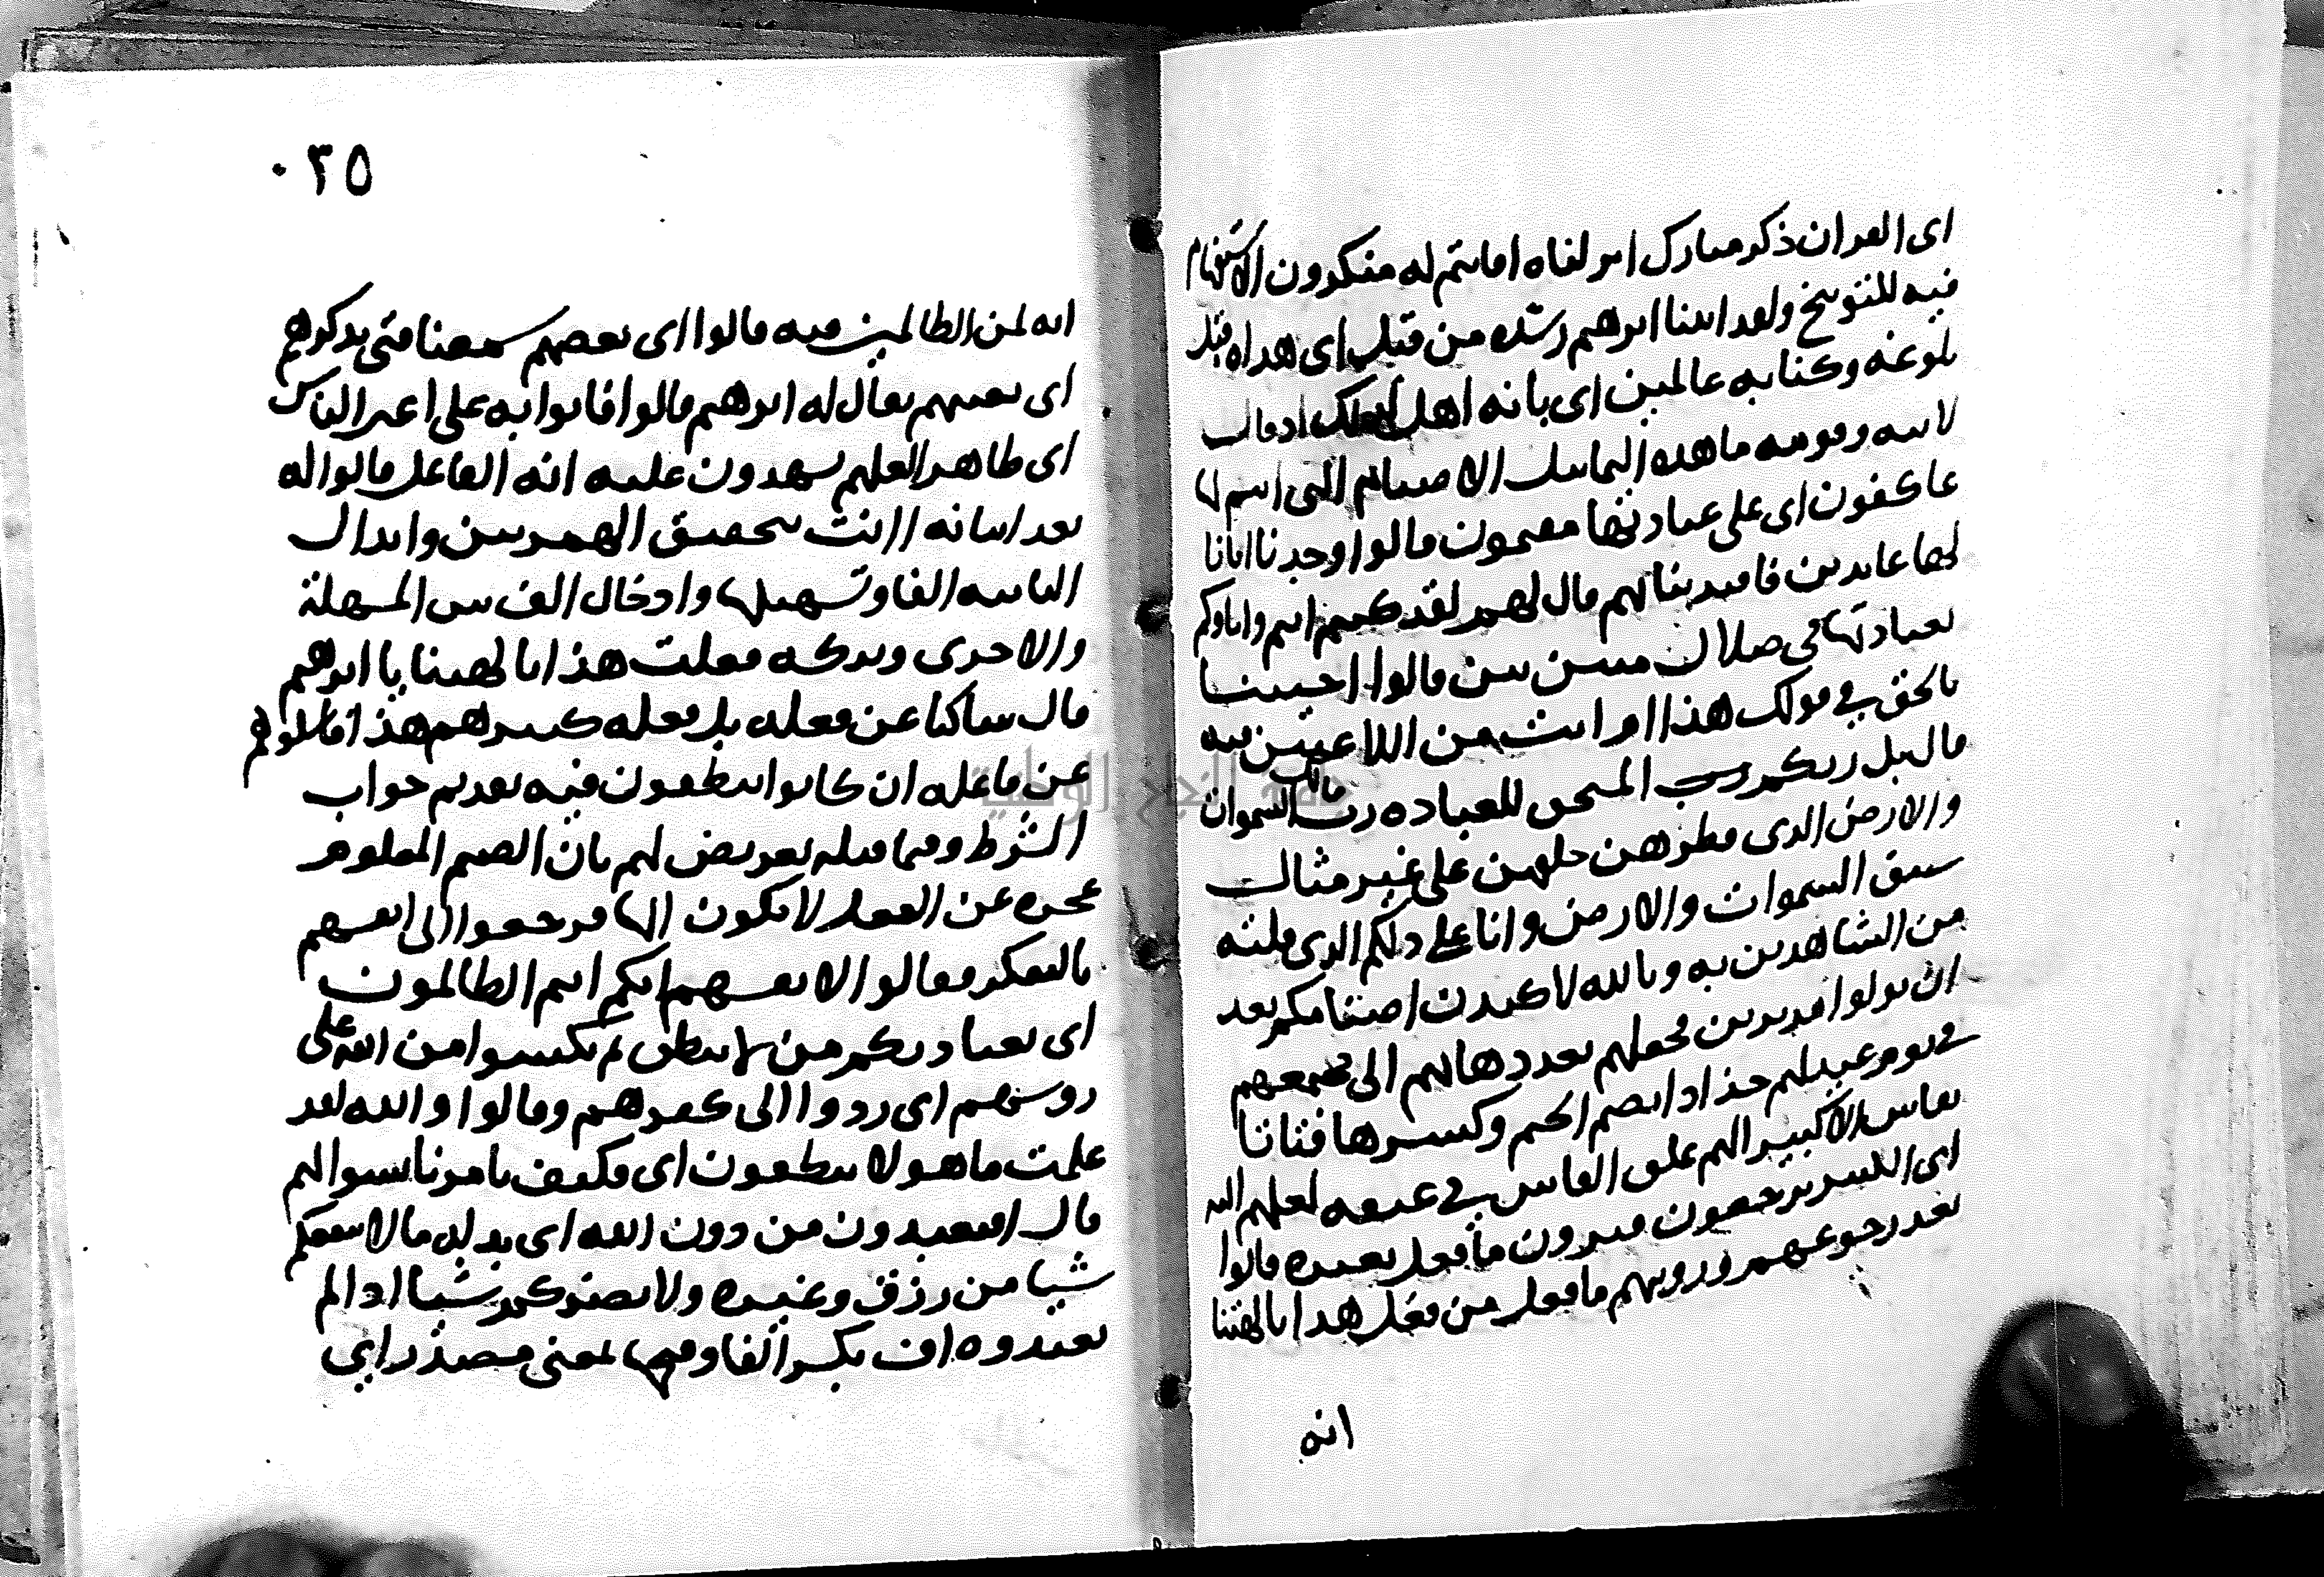 اى القران ذكر مبارك انزلناه افانتم له منكرون الاستفهام
فيه للتوبيخ ولقد اتينا ابرهيم رشده من قبل اى هداه قبل
بلوغه وكنا به عالمين اى بانه اهل لذلك اذ قال
لابيه وقومه ما هذه التماثيل الاصنام التى انتم لها
عاكفون اى على عبادتها مقيمون قالوا وجدنا اباءنا
لها عابدين فاقتدينا بهم قال لهم لقد كنتم انتم واباوكم
بعبادتها في ضلال مبين بين قالوا اجيتنا
بالحق في قولك هذا ام انت من اللاعبين فيه
قال بل ربكم رب المستحق للعباده رب مالك السموات
والارض الذى فطرهن خلقهن على غير مثال
سبق السموات والارض وانا على ذلكم الذى قلته
من الشاهدين به وتالله لاكيدن اصنامكم بعد
ان تولوا مدبرين فجعلهم بعد ذهابهم الى مجتمعهم
في يوم عيد لهم جذاذا بضم الجيم وكسرها فتاتا
بفاس الا كبيرا لهم علق الفاس في عنقه لعلهم اليه
اى الكبير يرجعون فيرون ما فعل بغيره قالوا
بعد رجوعهم ورويهم ما فعل من فعل هذا بالهتنا
انه
٠٣٥
انه لمن الظالمين فيه قالوا اى بعضهم سمعنا فتى يذكرهم
اى يعيبهم يقال له ابرهيم قالوا فاتوا به على اعين الناس
اى ظاهرا لعلهم يشهدون عليه انه الفاعل قالوا له
بعد اتيانه اانت بتحقيق الهمزتين وابدال
الثانيه الفا وتسهيلها وادخال الف بين المسهلة
والاخرى وتركه فعلت هذا بالهتنا يا ابرهيم
قال ساكتا عن فعله بل فعله كبيرهم هذا فاسالوهم
عن فاعله ان كانوا ينطقون فيه تقديم جواب
الشرط وفيما قبله تعريض لهم بان الصنم المعلوم
عجزه عن الفعل لا يكون الها فرجعوا الى انفسهم
بالتفكر فقالوا لانفسهم انكم انتم الظالمون
اى بعبادتكم من لا ينطق ثم نكسوا من الله على
روسهم اى ردوا الى كفرهم وقالوا والله لقد
علمت ما هولا ينطقون اى فكيف تامرنا بسوالهم
قال افتعبدون من دون الله اى بدله ما لا ينفعكم
شيا من رزق وغيره ولا يضركم شيا اذا لم
تعبدوه اف بكسر الفا وفتحها بمعنى مصدر اى